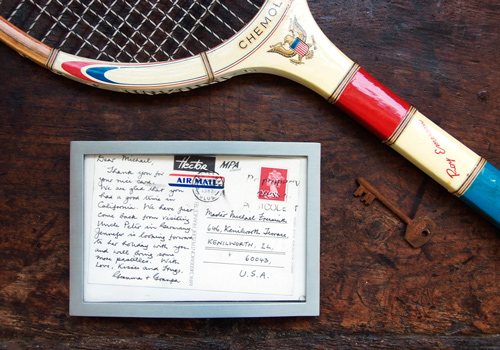 CHEMOLD
Roy Emerson
Dear Michael,
Thank you for
your nice card.
We are glad that you
had a good time in
California. We have just
come back from visiting
Uncle Peter in Germany.
Jennifer is looking forward
to her holiday with you
and will bring some
more pastilles. With
Love, Kisses and Hugs,
Granma + Granpa
Hector MPA
AIR MAIL
Master Michael
646, Kenilworth Terrace,
KENILWORTH, IL.
60043,
U.S.A.